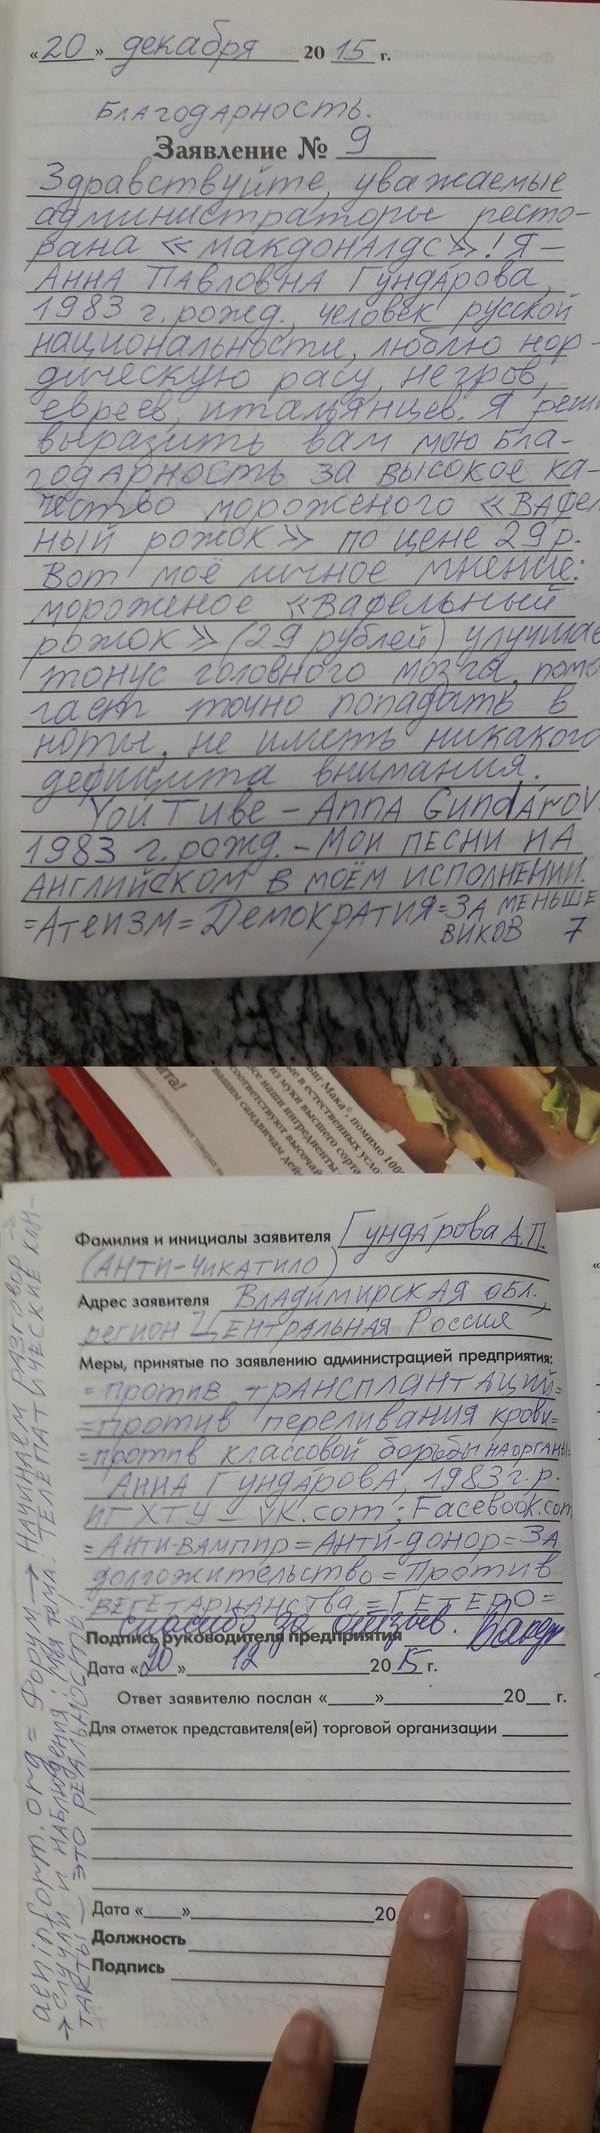 «20» декабря 2015 г.
Благодарность.
Заявление № 9
Здравствуйте, уважаемые
администраторы ресто-
рана «Макдоналдс»! Я –
Анна Павловна Гунда́рова,
1983 г. рожд., человек русской
национальности, люблю нор-
дическую расу, негров,
евреев, итальянцев. Я реши
выразить вам мою бла-
годарность за высокое ка-
чество мороженого «Вафел
ный рожок» по цене 29 р.
Вот моё личное мнение:
мороженое «Вафельный
рожок» (29 рублей) улучшае
тонус головного мозга, помо
гает точно попадать в
ноты, не иметь никакого
дефицита внимания.
YouTube – Anna Gundárov
1983 г. рожд. – Мои песни на
английском в моём исполнении.
=Атеизм=Демократия=За меньше
виков 7
Биг Мака®, помимо 100%
ые в естественных усло
из муки высшего сорта
все наши ингредиенты
соответствуют высочай
вашим сандвичам дей
йта!
Фамилия и инициалы заявителя Гунда́рова А.П.
(Анти-Чикатило)
Адрес заявителя Владимирская обл.,
регион Центральная Россия
Меры, принятые по заявлению администрацией предприятия:
=против трансплантаций=
=против переливания крови=
=против классовой борьбы на органы=
Анна Гундарова, 1983 г. р.
ИГХТУ – vk.com; Facebook.com
=Анти-вампир=Анти-донор=За
долгожительство=Против
вегетарианства=Гетеро=
спасибо за отзыв.
Подпись руководителя предприятия
Дата «20» 12 2015 г.
Ответ заявителю послан «___» 20__ г.
Для отметок представителя(ей) торговой организации
Дата «___» 20
Должность
Подпись
aeninform.org = Форум → Начинаем разговор →
→ Случаи и наблюдения; Моя тема: Телепатические кон-
такты – это реальность.